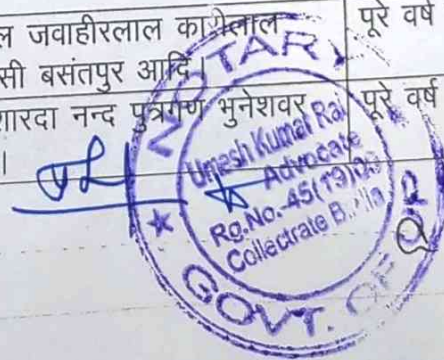 ल जवाहीरलाल काशीलाल पूरे वर्ष
सी बसंतपुर आदि।
शारदा नन्द पुत्रगण भुनेशवर पूरे वर्ष
।
NOTARY
Umesh Kumar Rai
Advocate
Rg.No.-45(19)
Collectrate
GOVT. OF